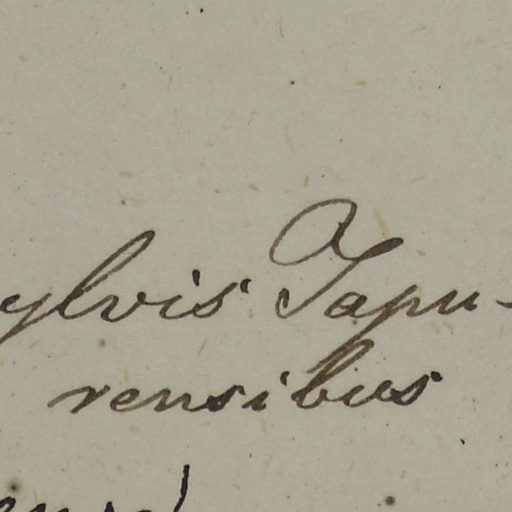 ylvis Japu-
rensibus